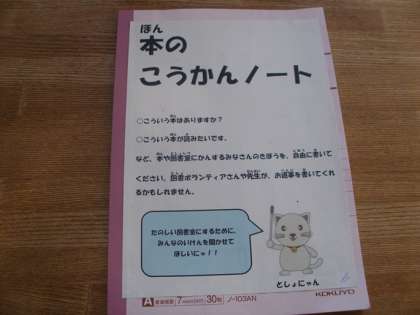 ほん
本の
こうかんノート
○こういう本はありますか？
○こういう本が読みたいです。
など、本や図書室にかんするみなさんのきぼうを、自由に書いて
ください。図書ボランティアさんや先生が、お返事を書いてくれ
るかもしれません。
たのしい図書室にするために、
みんなのいけんを聞かせて
ほしいにゃ！！
としょにゃん
A 7mm 30枚 ノ-103AN
KOKUYO